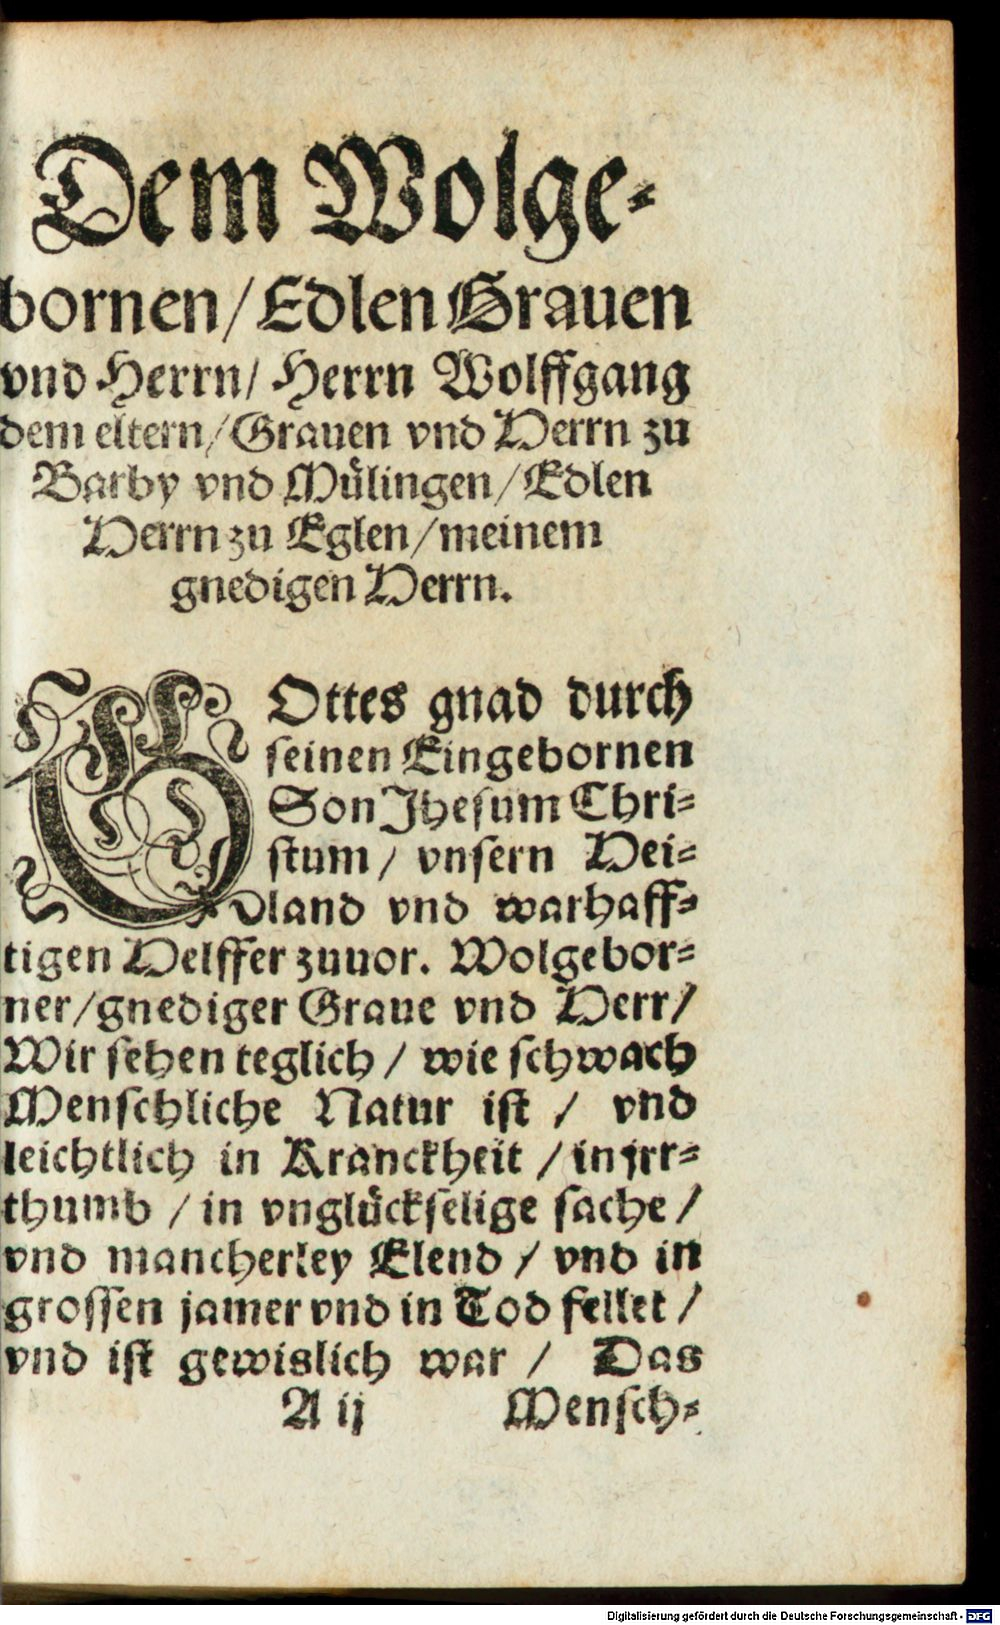 Dem Wolge⸗
bornen/ Edlen Grauen
vnd Herrn/ Herrn Wolffgang
dem eltern/ Grauen vnd Herrn zu
Barby vnd Mülingen/ Edlen
Herrn zu Eglen/ meinem
gnedigen Herrn.
GOttes gnad durch
seinen Eingebornen
Son Jhesum Chri⸗
stum/ vnsern Hei⸗
land vnd warhaff⸗
tigen Helffer zuuor. Wolgebor⸗
ner/ gnediger Graue vnd Herr/
Wir sehen teglich/ wie schwach
Menschliche Natur ist/ vnd
leichtlich in Kranckheit/ in jrr⸗
thumb/ in vnglückselige sache/
vnd mancherley Elend/ vnd in
grossen jamer vnd in Tod fellet/
vnd ist gewislich war/ Das
A ij Mensch⸗
Digitalisierung gefördert durch die Deutsche Forschungsgemeinschaft - DFG